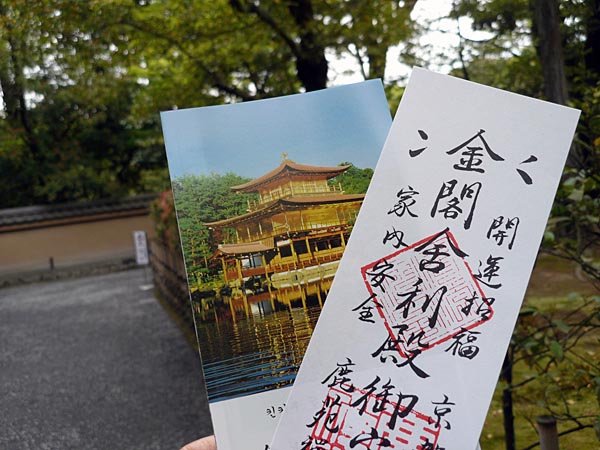 開運招福
京
金閣舎利殿御
家内安全
鹿苑
킨